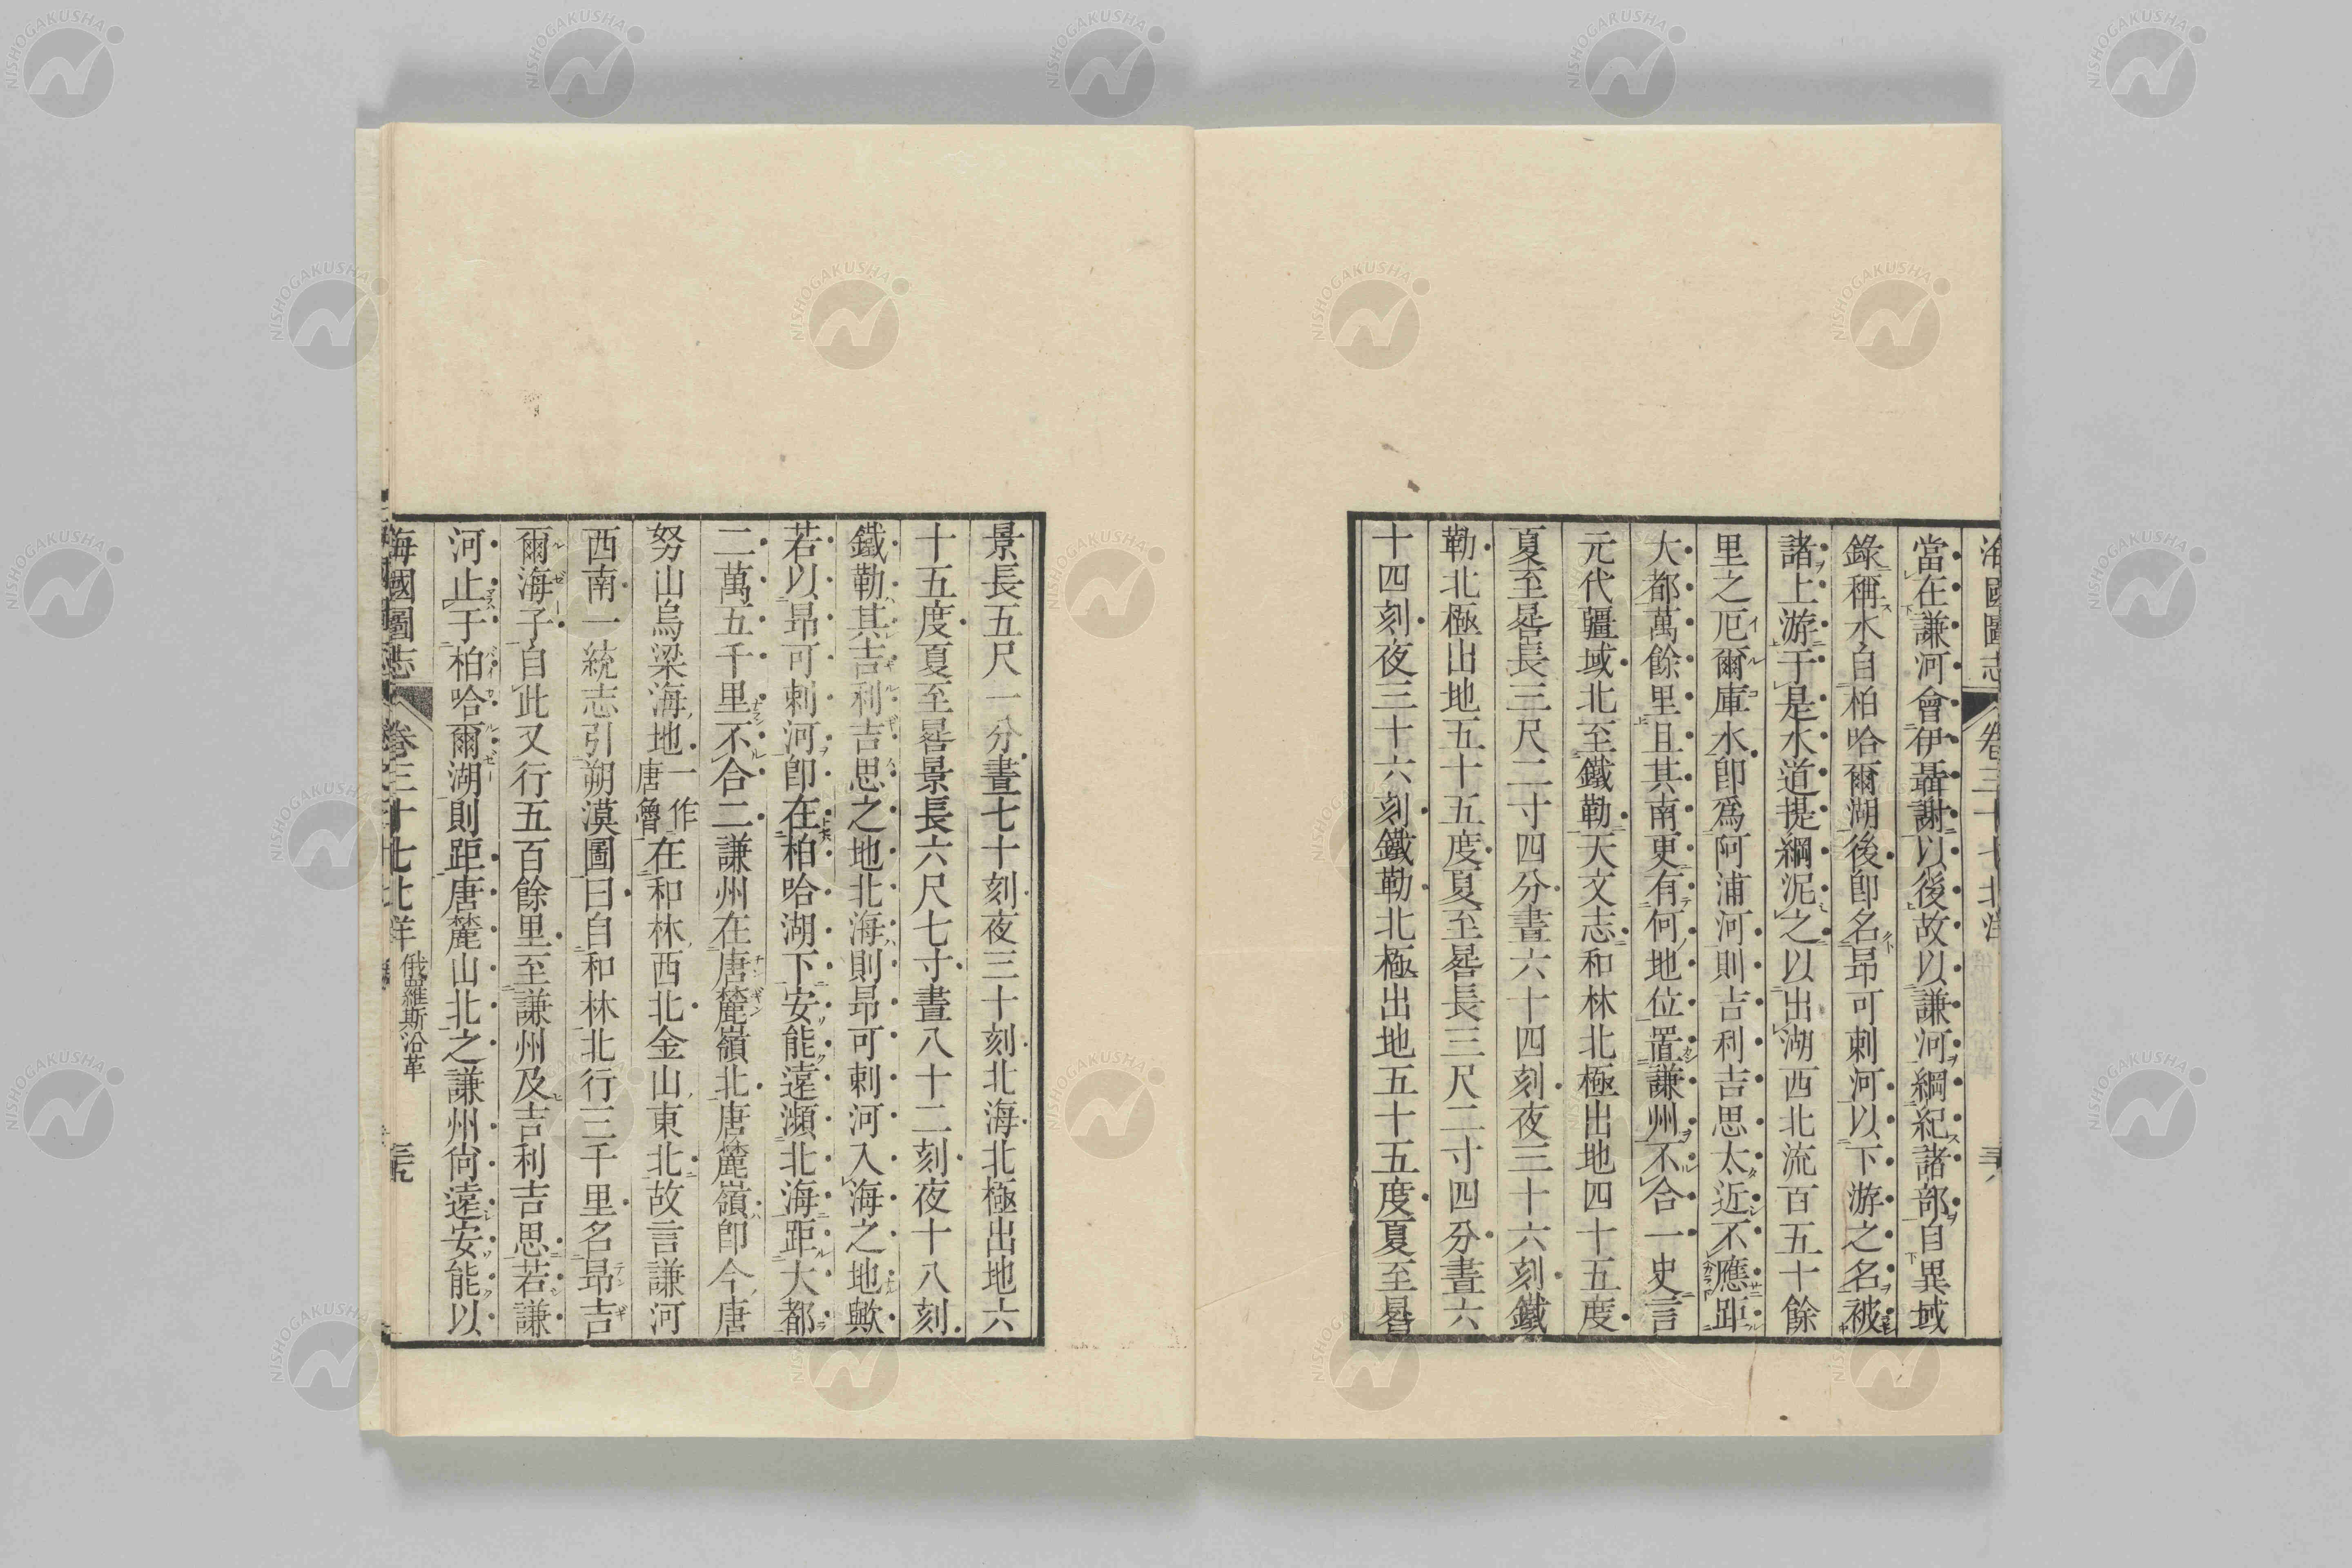 海國圖志 卷三十七北洋
當在謙河會伊聶謝以後故以謙河綱紀諸部自異域
錄稱水自柏哈爾湖後卽名昂可剌河以下游之名被
諸上游于是水道提綱泥之以出湖西北流百五十餘
里之厄爾庫水卽爲阿浦河則吉利吉思太近不應距
大都萬餘里且其南更有何地位置謙州不合一史言
元代疆域北至鐵勒天文志和林北極出地四十五度
夏至晷長三尺二寸四分晝六十四刻夜三十六刻鐵
勒北極出地五十五度夏至晷長三尺二寸四分晝六
十四刻夜三十六刻鐵勒北極出地五十五度夏至晷
景長五尺一分晝七十刻夜三十刻北海北極出地六
十五度夏至晷景長六尺七寸晝八十二刻夜十八刻
鐵勒其吉利吉思之地北海則昂可剌河入海之地歟
若以昂可剌河卽在柏哈湖下安能遠瀕北海距大都
二萬五千里不合二謙州在唐麓嶺北唐麓嶺卽今唐
努山烏梁海地一作唐魯在和林西北金山東北故言謙河
西南一統志引朔漠圖曰自和林北行三千里名昂吉
爾海子自此又行五百餘里至謙州及吉利吉思若謙
河止于柏哈爾湖則距唐麓山北之謙州尙遠安能以
海國圖志 卷三十七北洋 俄羅斯沿革
NISHOGAKUSHA